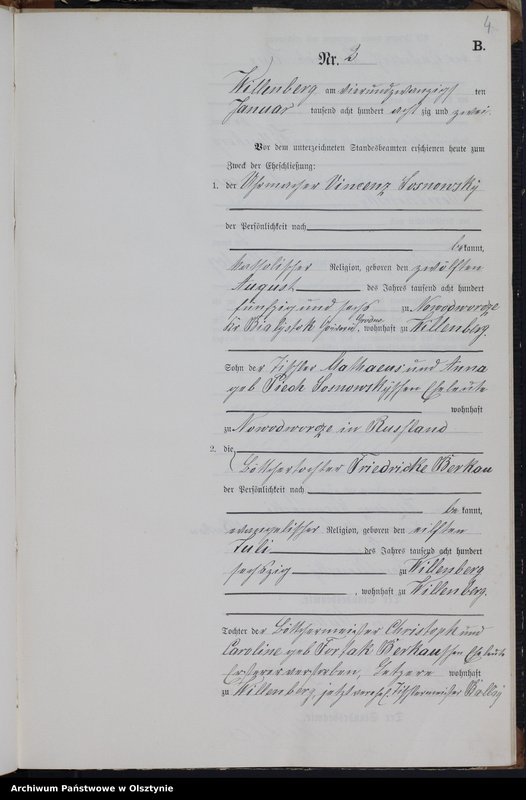 4.
B.
Nr. 3
Willenberg am vierundzwanzigsten
Januar tausend acht hundert acht zig und zwei.
Vor dem unterzeichneten Standesbeamten erschienen heute zum
Zweck der Eheschließung:
1. der Uhrmacher Vincenz Sosnowsky
der Persönlichkeit nach
bekannt,
katholischer Religion, geboren den zwölften
August des Jahres tausend acht hundert
fünfzig und sechs zu Nowodworze
Bialystok Grodno, wohnhaft zu Willenberg.
Sohn der Tischler Mathaeus und Anna
geb Piech Sosnowskyschen Eheleute
wohnhaft
zu Nowodworze in Russland
2. die
Böttchertochter Friedricke Berkau
der Persönlichkeit nach
be kannt,
evangelischer Religion, geboren den eilften
Juli des Jahres tausend acht hundert
sechszig zu Willenberg
, wohnhaft zu Willenberg.
Tochter der Böttchermeister Christoph und
Caroline geb Torkak Berkauschen Eheleute
Ersterer verstorben, Letzere wohnhaft
zu Willenberg, jetzt verehel. Tischlermeister
Archiwum Państwowe w Olsztynie